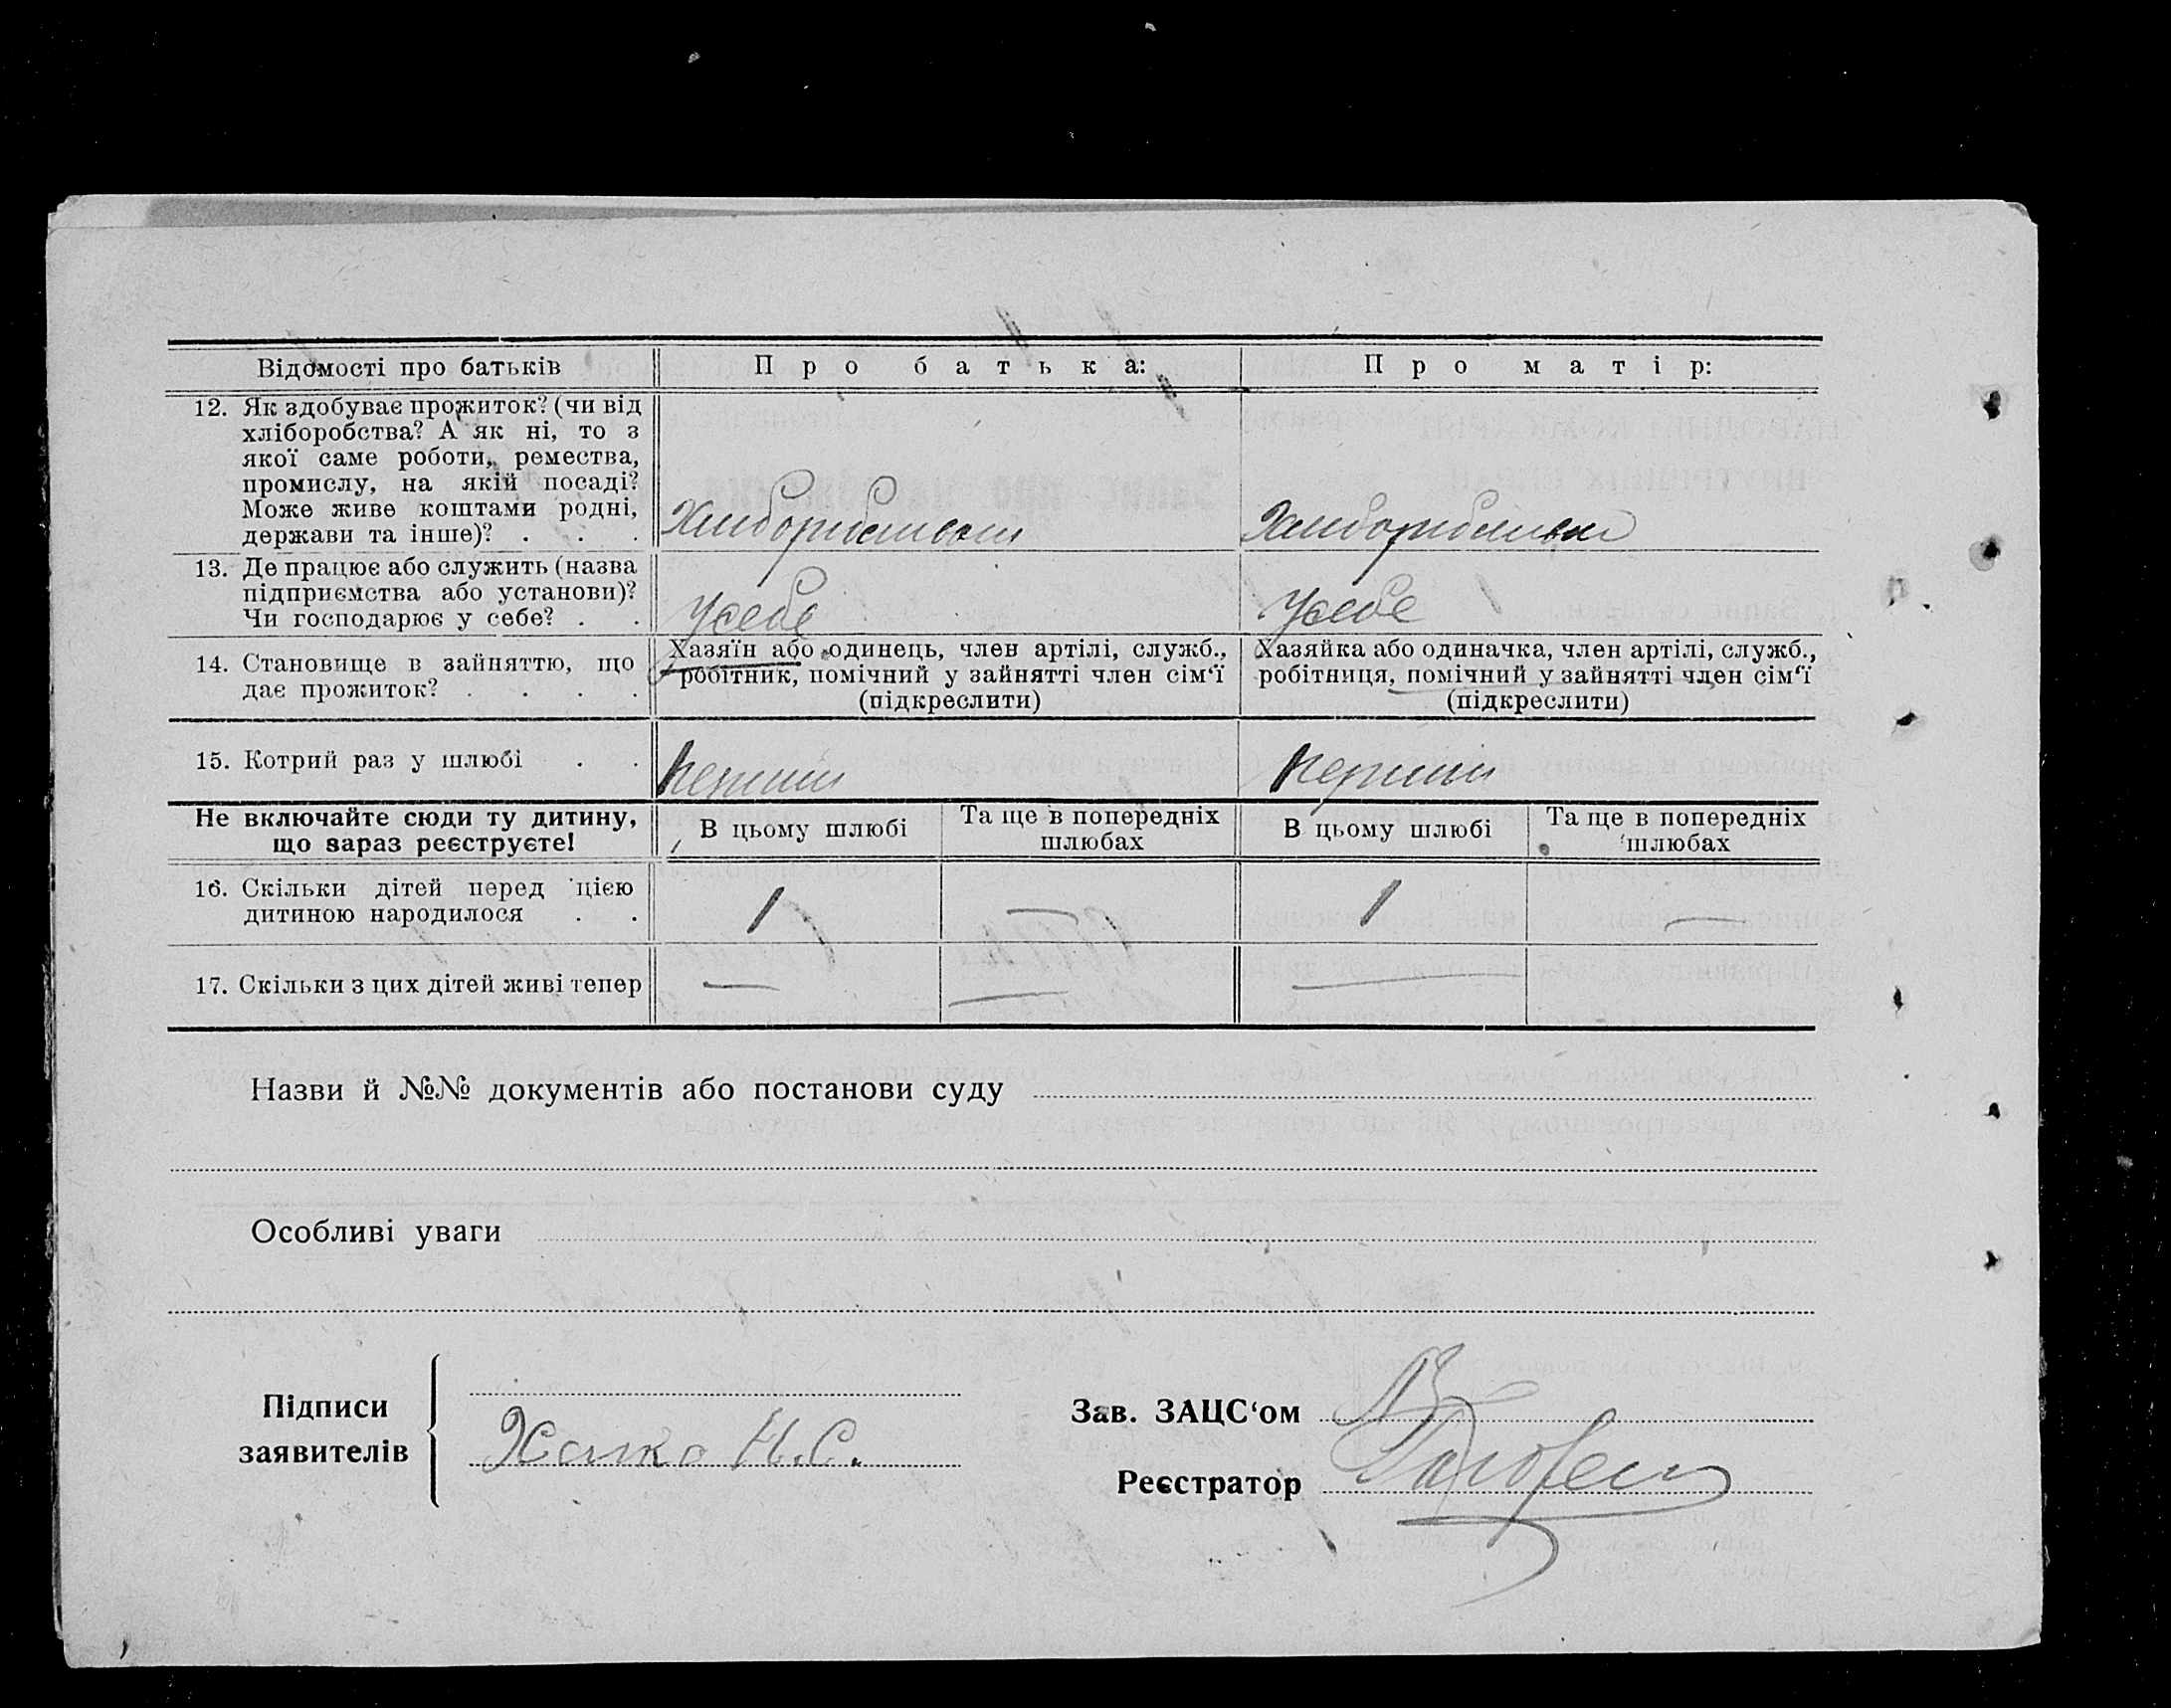 Відомості про батьків
Про батька:
Про матір:
12. Як здобуває прожиток? (чи від
хліборобства? А як ні, то з
якої саме роботи, ремества,
промислу, на якій посаді?
Може живе коштами родні,
держави та інше)? . . .
13. Де працює або служить (назва
підприємства або установи)?
Чи господарює у себе? . .
Усебе
Усебе
14. Становище в зайняттю, що
дає прожиток? . . . .
Хазяїн або одинець, член артілі, служб.,
робітник, помічний у зайнятті член сім‘ї
(підкреслити)
Хазяйка або одиначка, член артілі, служб.,
робітниця, помічний у зайнятті член сім‘ї
(підкреслити)
15. Котрий раз у шлюбі . .
перший
перший
Не включайте сюди ту дитину,
що зараз реєструєте!
В цьому шлюбі
Та ще в попередніх
шлюбах
В цьому шлюбі
Та ще в попередніх
шлюбах
16. Скільки дітей перед цією
дитиною народилося . .
1
—
1
—
17. Скільки з цих дітей живі тепер
—
—
—
Назви й №№ документів або постанови суду
Особливі уваги
Підписи
заявителів
Н.С.
Зав. ЗАЦС‘ом
Реєстратор